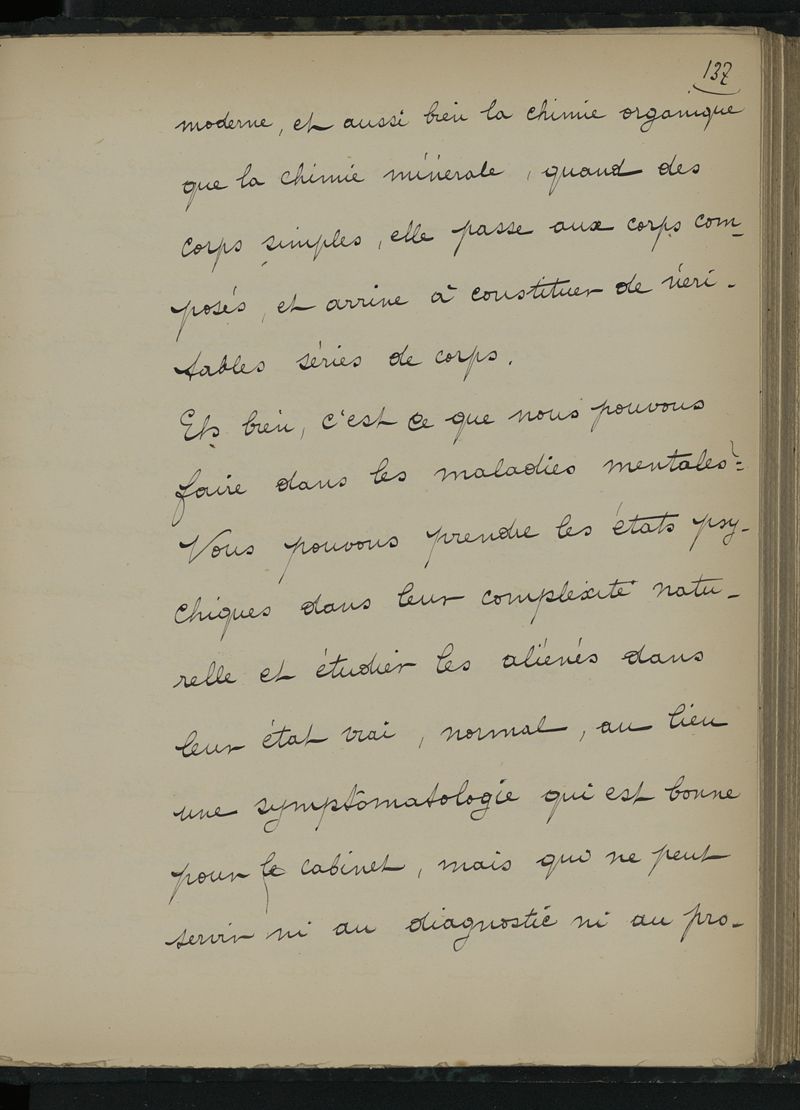 137
moderne, et aussi bien la chimie organique
que la chimie minérale, quand des
corps simples, elle passe aux corps com-
posés, et arrive à constituer de véri-
tables séries de corps.
Eh bien, c'est ce que nous pouvons
faire dans les maladies mentales.
Nous pouvons prendre les états psy-
chiques dans leur complexité natu-
relle et étudier les aliénés dans
leur état vrai, normal, au lieu
une symptômatologie qui est bonne
pour le cabinet, mais qui ne peut
servir ni au diagnostic ni au pro-